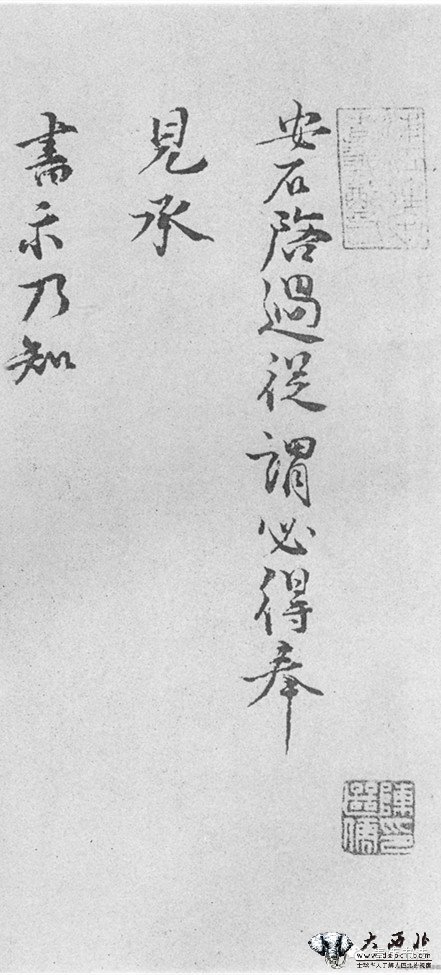 安石啓過從謂必得奉
見承
書示乃知
大西北